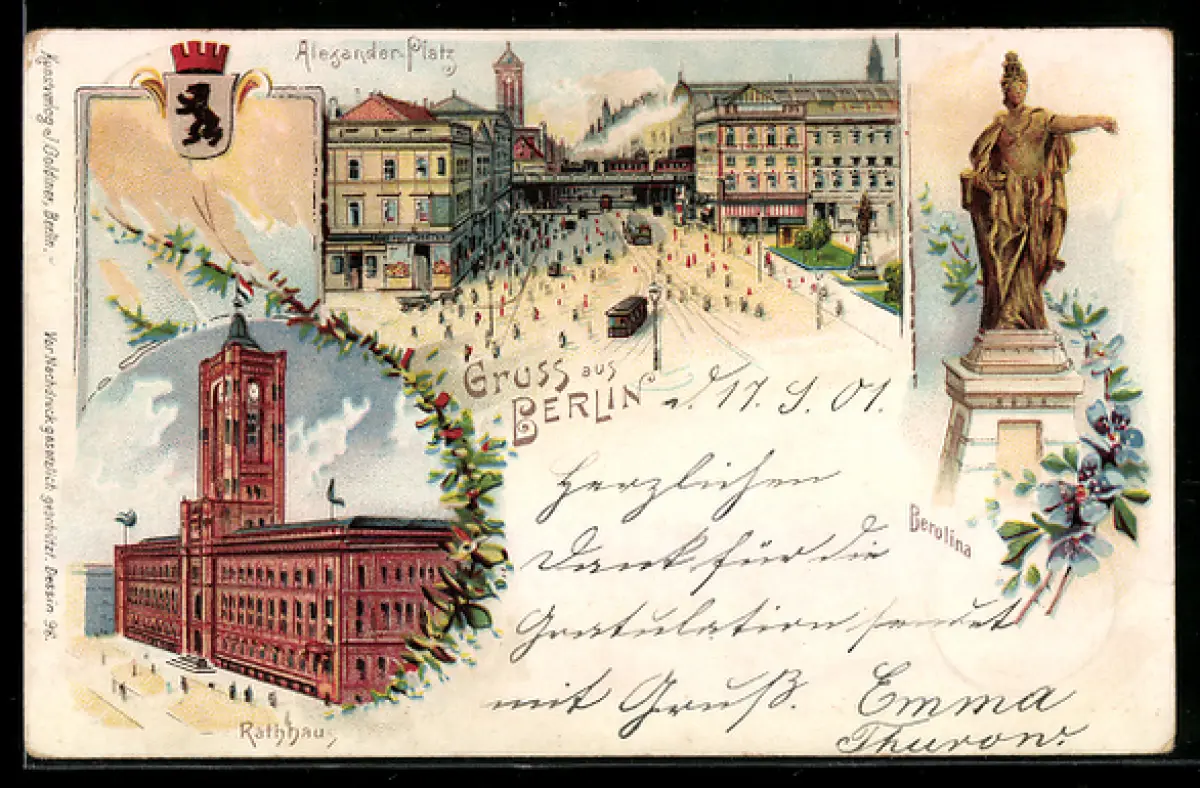 Alexander-Platz
Kunstverlag J. Goldiner, Berlin. -
Vor Nachdruck gesetzlich geschützt. Dessin 96.
Gruss aus
BERLIN
d. 17. 9. 01.
Herzlichen
Dank für die
Gratulation sendet
mit Gruß. Emma
Thuron.
Berolina
Rathhaus